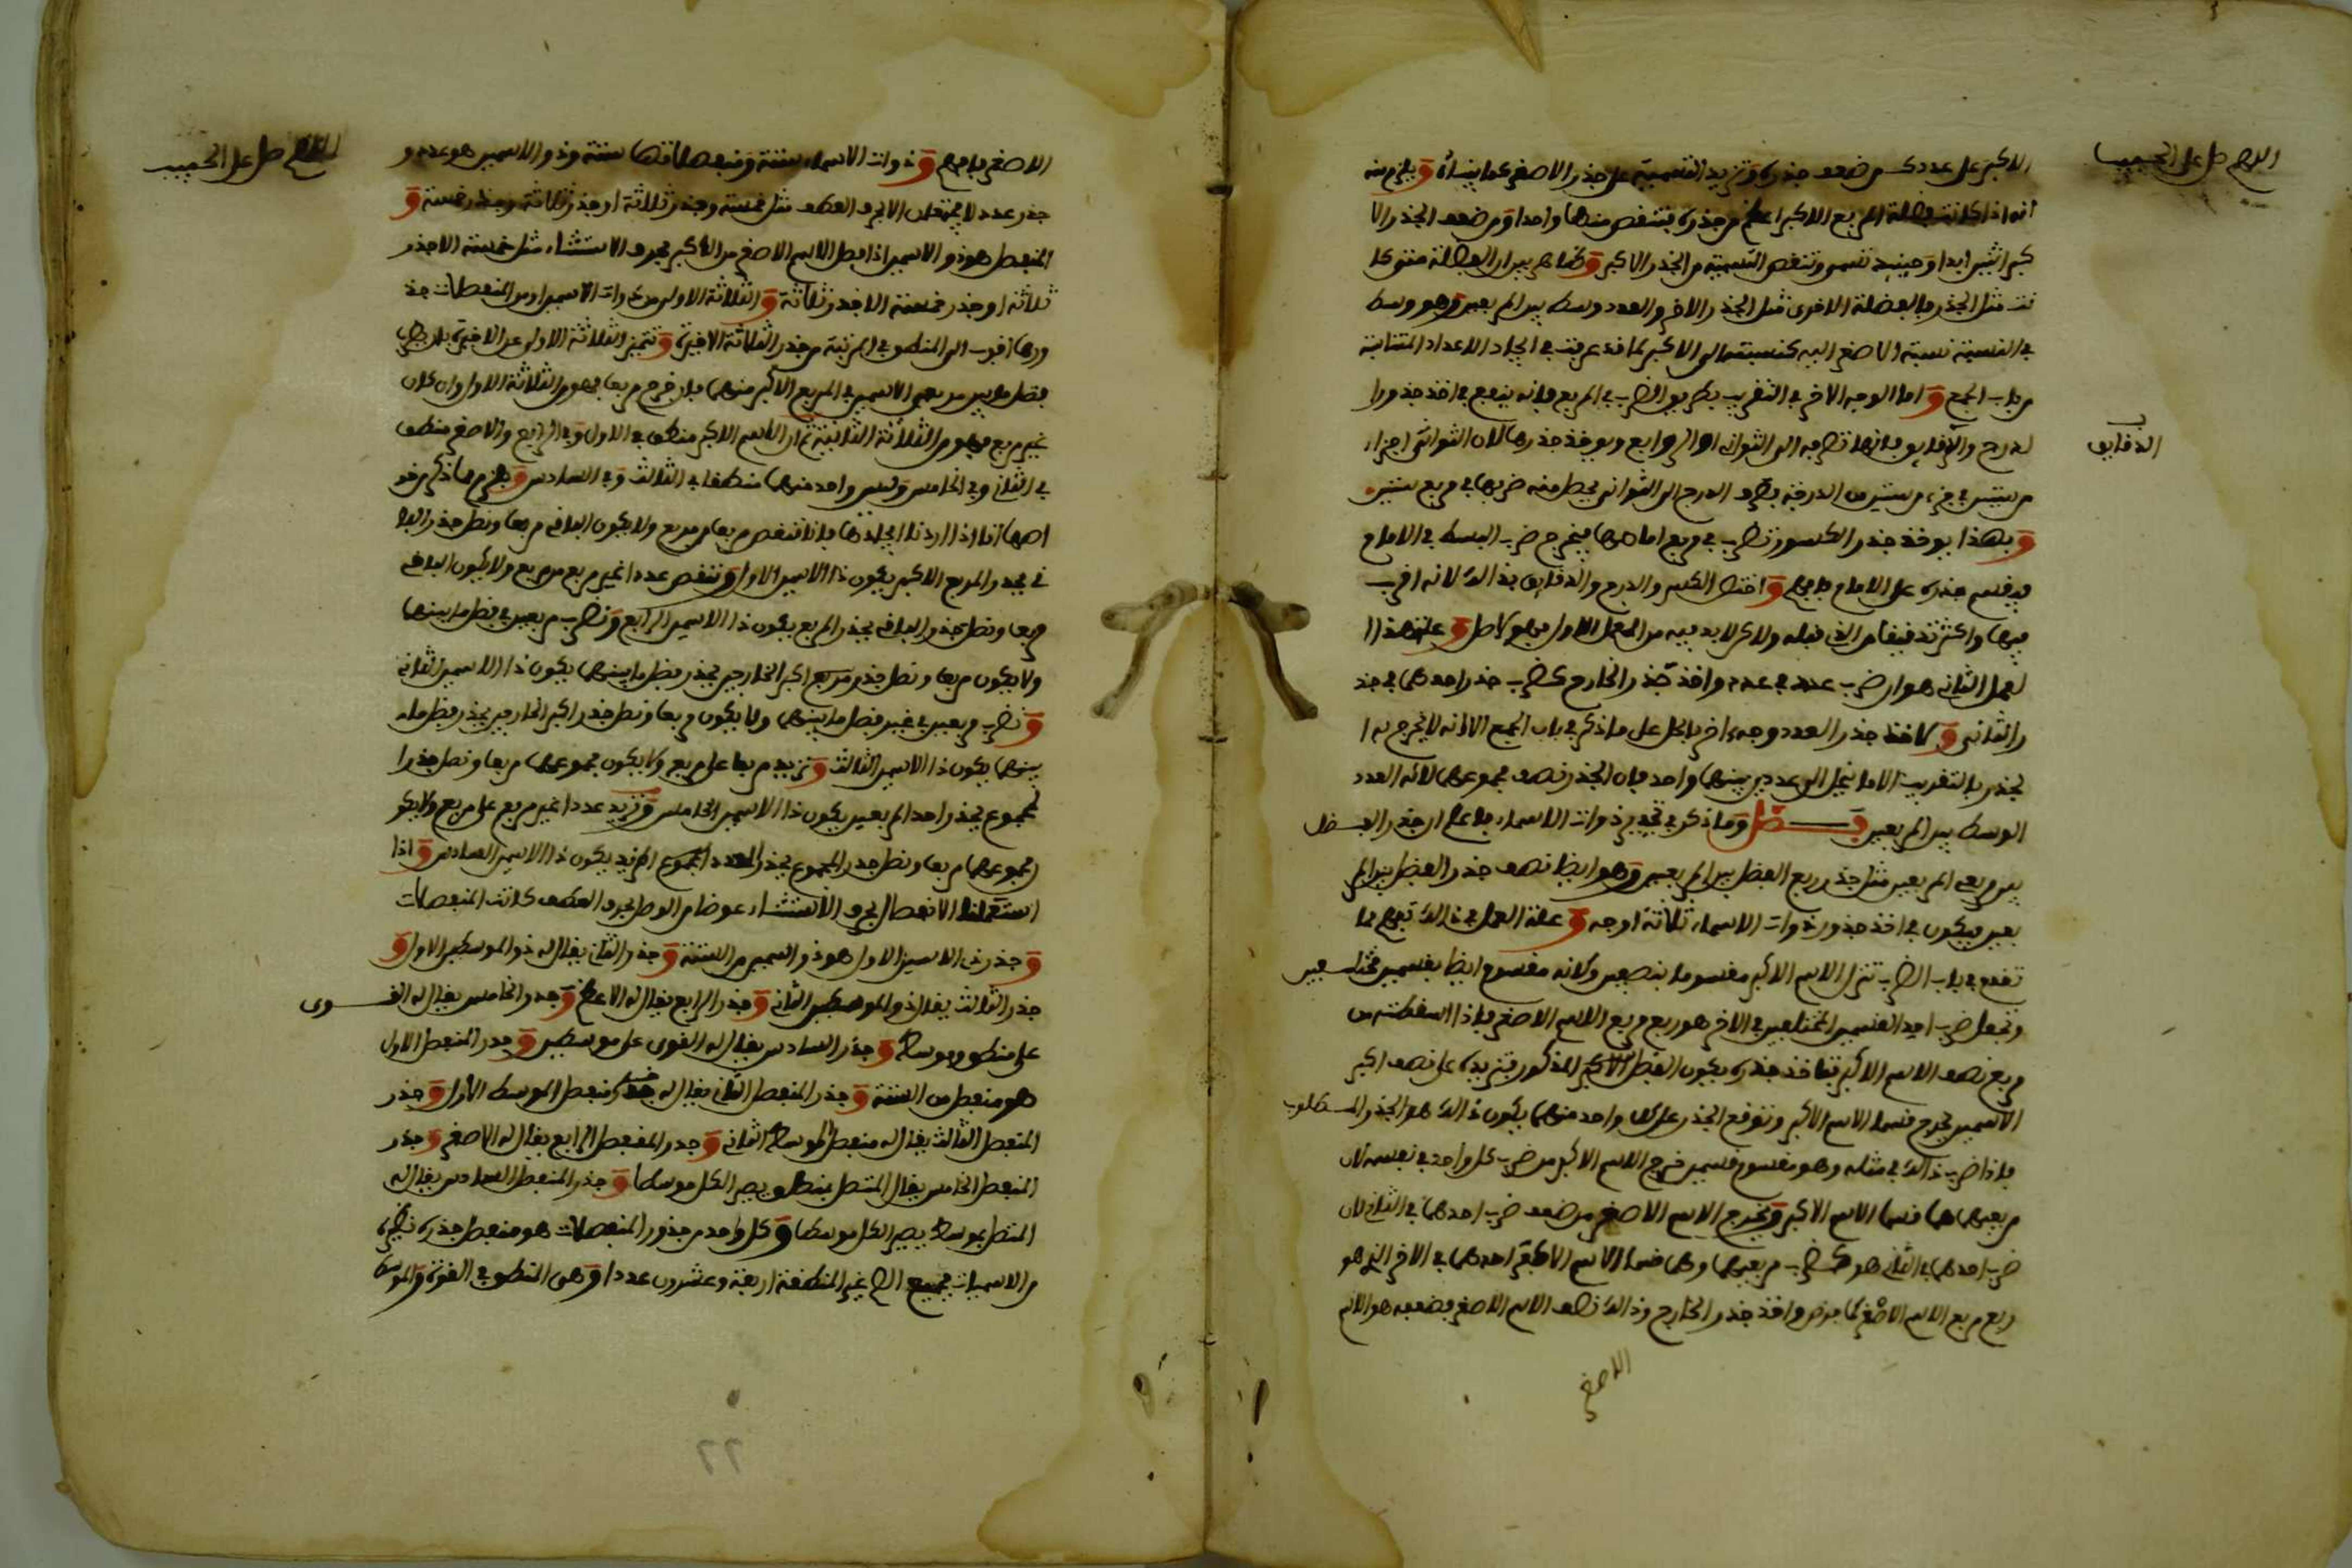 اللهم صل على الحبيب
الاكبر على عدد كـ من ضعف جذره وتزيد التسمية على جذر الاصغر كما بيناه ويلزم منه
انه اذا كانت فضلة المربع الاكبر اعظم من جذره فتنقص منها واحدا ومن ضعف الجذر الا
كبر اثنين ابدا وحينيذ تسمى وتنقص التسمية من الجذر الاكبر وظاهر بيران الفضلة متى كا
نت مثل الجذر فالفضلة الاخرى مثل الجذر الاخر والعدد وسط بين المربعين وهو وسط
في النسبة نسبة الاصغر اليه كنسبته الى الاكبر كما قد عرفت في ايجاد الاعداد المتناسبة
من باب الجمع واما الوجه الاخر في التقريب بطريق الضرب في المربع فانه ينفع في اخذ جذور ا
لدرج والدقايق فانها تصرف الى الثواني او الروابع ويوخذ جذرها لان الثواني اجزاء
الدقايق
من ستين في جزء من ستين من الدرجة بصرف الدرج الى الثواني يحصل منه ضربها في مربع ستين
وبهذا يوخذ جذر الكسور تضرب في مربع امامها فيخرج ضرب البسط في الامام
فيقسم جذره على الامام فافهم واختص الكسر والدرج والدقايق بذلك لانه اقرب
فيها واكثر تدقيقا من الذي قبله ولاكن لابد فيه من العمل الاول فهو كامل وعلة هذا ا
لعمل الثاني هو ان ضرب عدد في عدد واخذ جذر الخارج كضرب جذر احدهما في جذ
ر الثاني ولاخذ جذر العدد وجه اخر بالحل على ما ذكر في باب الجمع الا انه لا يخرج به ا
لجذر بالتقريب الا ما ينحل الى عددين بينهما واحد فان الجذر نصف مجموعهما لانه العدد
الوسط بين المربعين فصل وما ذكر في تجذير ذوات الاسماء فاعلم ان جذر الفضل
بين مربعي المربعين مثل جذر ربع الفضل بين المربعين وهو ايضا نصف جذر الفضل بين المر
بعين فيكون في اخذ جذور ذوات الاسماء ثلاثة اوجه وعلة العمل في ذلك تفهم مما
تقدم في باب الضرب تنزل الاسم الاكبر مقسوما بنصفين وكانه مقسوم ايضا بقسمين مختلفين
وتجعل ضرب احد القسمين المختلفين في الاخر هو ربع مربع الاسم الاصغر فاذا اسقطته من
مربع نصف الاسم الاكبر فتاخذ جذره يكون الفضل المذكور فتزيده على نصف اكبر
الاسمين يخرج قسما الاسم الاكبر وتوقع الجذر على كل واحد منهما يكون ذلك هو الجذر المطلوب
فاذا ضرب ذلك في مثله وهو مقسوم قسمين خرج الاسم الاكبر من ضرب كل واحد في نفسه لان
مربعيهما هما قسما الاسم الاكبر ويخرج الاسم الاصغر من ضعف ضرب احدهما في الثاني لان
ضرب احدهما في الثاني هو كضرب مربعيهما وهما قسما الاسم الاكبر احدهما في الاخر الذي هو
ربع مربع الاسم الاصغر كما فرض واخذ جذر الخارج وذلك نصف الاسم الاصغر فضعفه هو الاسم
الاصغر
اللهم صل على الحبيب
الاصغر فافهم وذوات الاسماء ستة ومنفصلاتها ستة وذو الاسمين هو عدد و
جذر عدد لا يجتمعان الا بحرف العطف مثل خمسة وجذر ثلاثة او جذر ثلاثة وجذر خمسة و
المنفصل هو ذو الاسمين اذا فصل الاسم الاصغر من الاكبر بحرف الاستثناء مثل خمسة الا جذر
ثلاثة او جذر خمسة الا جذر ثلاثة والثلاثة الاولى من ذوات الاسمين او من المنفصلات جذ
ورها اقرب الى المنطق في المرتبة من جذر الثلاثة الاخيرة وتتميز الثلاثة الاولى عن الاخيرة بان تضرب
فضل ما بين مربعي الاسمين في المربع الاكبر منهما فان خرج مربعا فهو من الثلاثة الاول وان كان
غير مربع فهو من الثلاثة الثانية ثم ان الاسم الاكبر منطق في الاول وفي الرابع والاصغر منطق
في الثاني وفي الخامس وليس واحد منهما منطقا في الثالث وفي السادس ويلزم مما ذكر من خو
اصها اننا اذا اردنا ايجادها فاننا ننقص مربعا من مربع ولا يكون الباقي مربعا ونصل جذر البا
قي بجذر المربع الاكبر يكون ذا الاسمين الاول وننقص عددا غير مربع من مربع ولا يكون الباقي
مربعا ونصل جذر الباقي بجذر المربع يكون ذا الاسمين الرابع ونضرب مربعين في فضل ما بينهما
ولا يكون مربعا ونصل جذر مربع اكبر الخارجين بجذر فضل ما بينهما يكون ذا الاسمين الثاني
ونضرب مربعين في غير فضل ما بينهما ولا يكون مربعا ونصل جذر اكبر الخارجين بجذر فضل ما
بينهما يكون ذا الاسمين الثالث ونزيد مربعا على مربع ولا يكون مجموعهما مربعا ونصل جذر ا
لمجموع بجذر احد المربعين يكون ذا الاسمين الخامس ونزيد عددا غير مربع على مربع ولا يكو
ن مجموعهما مربعا ونصل جذر المجموع بجذر العدد المزيد يكون ذا الاسمين السادس واذا
استعملنا الانفصال بحرف الاستثناء عوضا من الوصل بحرف العطف كانت المنفصلات
وجذر ذي الاسمين الاول هو ذو اسمين من الستة وجذر الثاني يقال له ذو الموسطين الاول و
جذر الثالث يقال ذو الموسطين الثاني وجذر الرابع يقال له الاعظم وجذر الخامس يقال له القوى
على منطق وموسط وجذر السادس يقال له القوى على موسطين وجذر المنفصل الاول
هو منفصل من الستة وجذر المنفصل الثاني يقال له منفصل الموسط الاول وجذر
المنفصل الثالث يقال له منفصل الموسط الثاني وجذر المنفصل الرابع يقال له الاصغر وجذر
المنفصل الخامس يقال المتصل بمنطق يصير الكل موسطا وجذر المنفصل السادس يقال له
المتصل بموسط يصير الكل موسطا وكل واحد من جذور المنفصلات هو منفصل جذر نظيره
من الاسميات فجميع غير المنطقة اربعة وعشرون عددا وهي المنطق في القوة والموسط